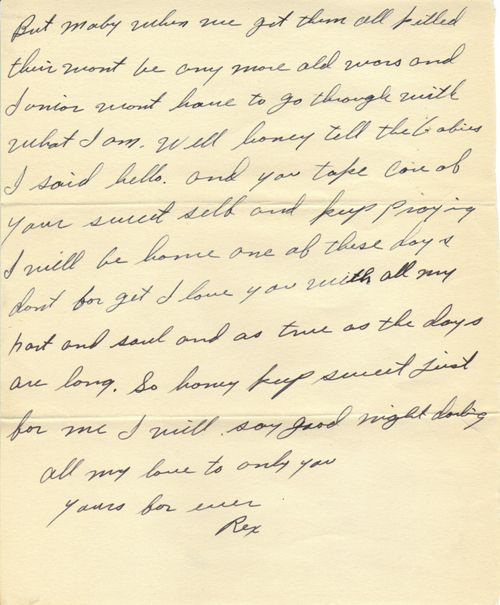 But maby when we get them all killed
thir wont be any more old wars and
Junior wont have to go through with
what I am. Well honey tell the babies
I said hello. and you take care of
your sweet self and keep praying
I will be home one of these days
dont for get I love you with all my
hart and soul and as true as the days
are long. So honey keep sweet just
for me I will say good night darling
all my love to only you
yours for ever
Rex